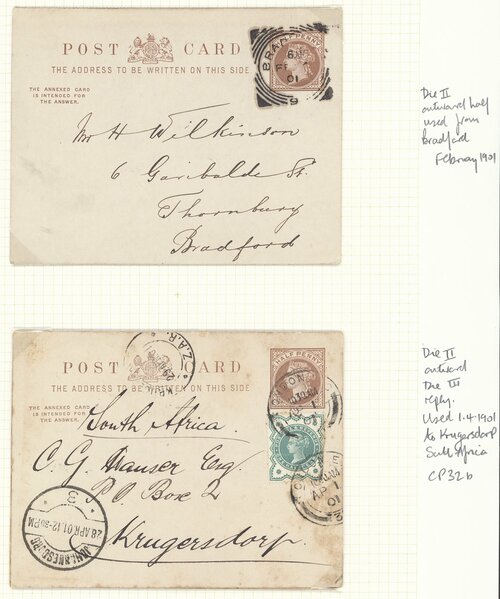 POST CARD
THE ADDRESS TO BE WRITTEN ON THIS SIDE
THE ANNEXED CARD
IS INTENDED FOR
THE ANSWER.
HALF PENNY
BRAD
FE
01
9
Mr H Wilkinson
6 Garibalde St.
Thornbury
Bradford
Die II
outward half
used from
Bradford
February 1901
POST CARD
THE ADDRESS TO BE WRITTEN ON THIS SIDE
THE ANNEXED CARD
IS INTENDED FOR
THE ANSWER.
HALF PENNY
Z.A.R.
South Africa
C. G. Hauser Esq.
P.O. Box 2
Krugersdorp.
AP 1
01
3
28 APR.01.12-30PM
JOHANNESBURG
Die II
outward
Die III
reply.
Used 1.4.1901
to Krugersdorp
South Africa
CP32b